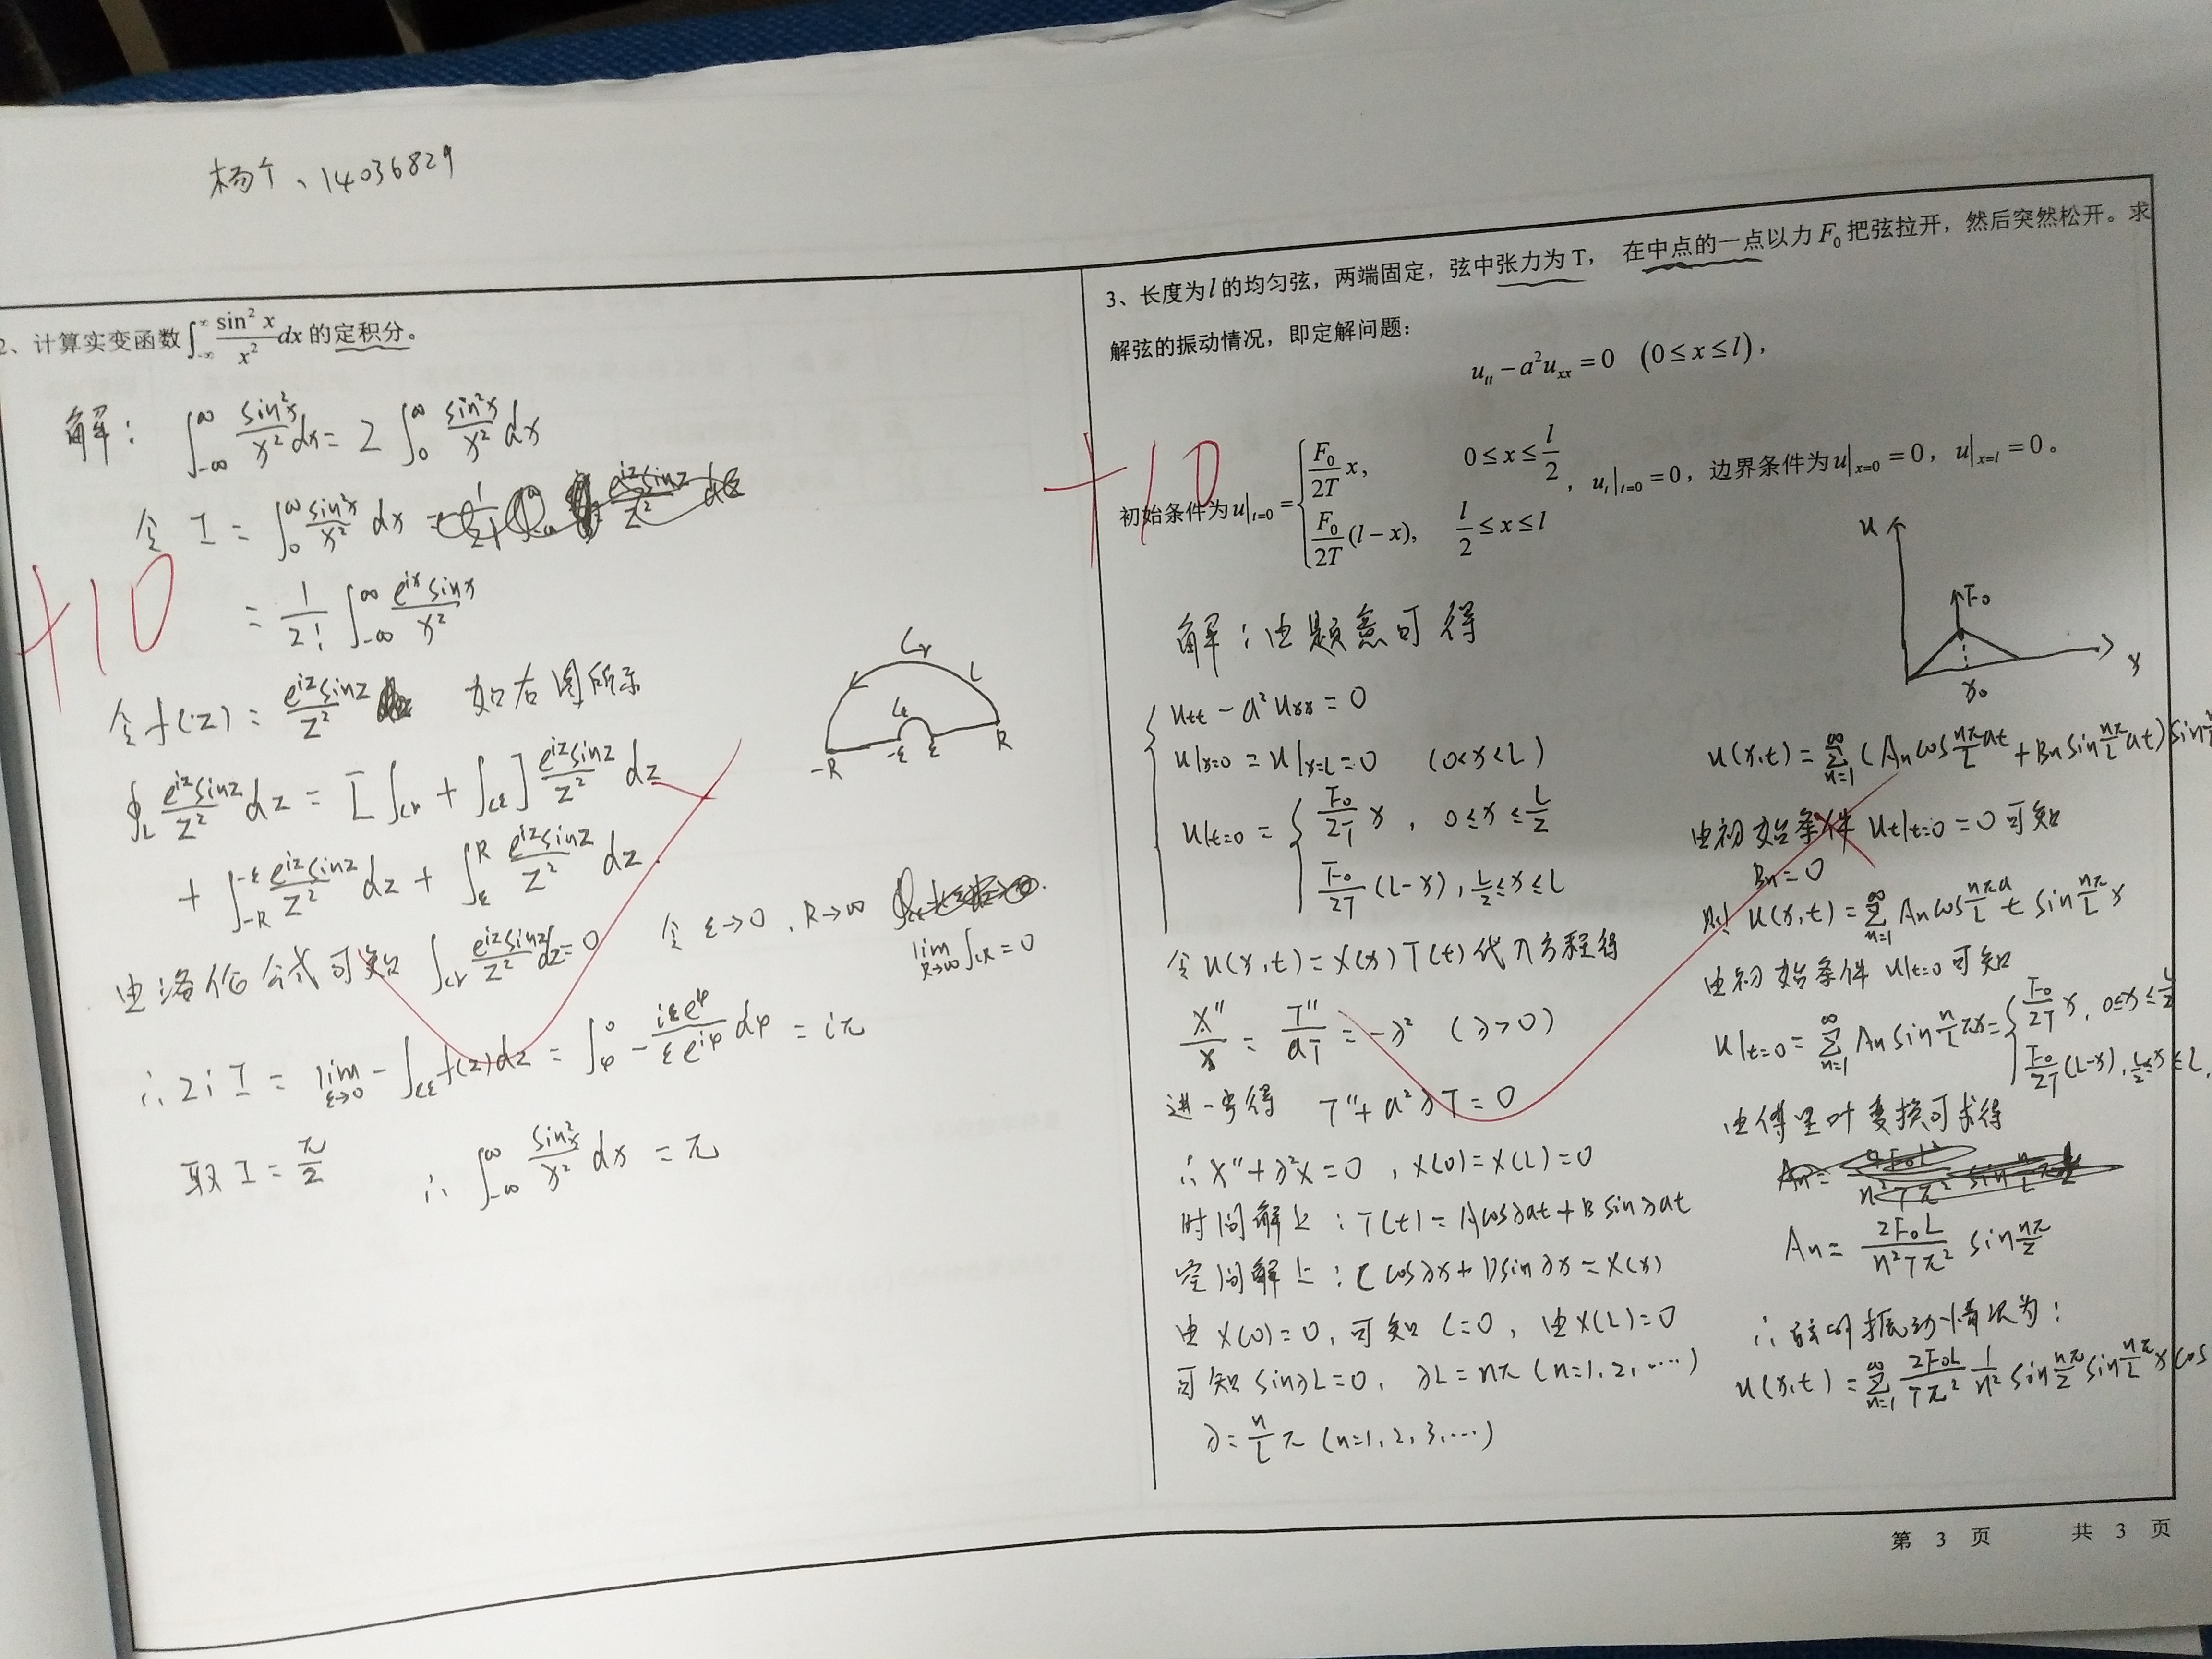 杨个、14036829
2、计算实变函数∫_{-∞}^{∞} sin²x/x² dx 的定积分。
解: ∫_{-∞}^{∞} sin²x/x² dx = 2∫_0^∞ sin²x/x² dx
令 I = ∫_0^∞ sin²x/x² dx
= 1/2i ∫_{-∞}^{∞} e^{ix}sinx/x²
+10
令f(z) = e^{iz}sinz/z² 如右图所示
Cr L Cε -R -ε ε R
∮_L e^{iz}sinz/z² dz = [∫_{Cr} + ∫_{Cε}] e^{iz}sinz/z² dz
+ ∫_{-R}^{-ε} e^{iz}sinz/z² dz + ∫_ε^R e^{iz}sinz/z² dz.
令 ε→0, R→∞
由洛伦公式可知 ∫_{Cr} e^{iz}sinz/z² dz=0 lim_{R→∞} ∫_{CR} = 0
∴ 2i I = lim_{ε→0} - ∫_{Cε} f(z)dz = ∫_φ^0 - iεe^φ/εe^{iφ} dφ = iπ
取 I = π/2 ∴ ∫_{-∞}^{∞} sin²x/x² dx = π
3、长度为l的均匀弦，两端固定，弦中张力为T， 在中点的一点以力F₀把弦拉开，然后突然松开。求
解弦的振动情况，即定解问题：
u_tt − a²u_xx = 0 (0≤x≤l)，
+10
初始条件为u|_{t=0} = { F₀/2T x, 0≤x≤l/2
F₀/2T (l−x), l/2≤x≤l ，u_t|_{t=0}=0，边界条件为u|_{x=0}=0，u|_{x=l}=0。
u F₀ x₀ x
解：由题意可得
{ Utt − a²Uxx = 0
U|x=0 = U|x=L = 0 (0<x<L)
U|t=0 = { F₀/2T x , 0≤x≤L/2
F₀/2T (L−x), L/2≤x≤L
令U(x,t) = X(x)T(t)代入方程得
X''/X = T''/aT = −λ² (λ>0)
进一步得 T''+a²λT=0
∴X''+λ²X=0 , X(0)=X(L)=0
时间解上：T(t) = Acosλat+Bsinλat
空间解上：C cosλx+Dsinλx=X(x)
由X(0)=0,可知 C=0, 由X(L)=0
可知 sinλL=0, λL=nπ (n=1,2,……)
λ= n/L π (n=1,2,3,…)
u(x,t) = Σ_{n=1}^∞ (An cos nπ/L at + Bn sin nπ/L at) sin
由初始条件 Ut|t=0 =0 可知
Bn=0
则 U(x,t) = Σ_{n=1}^∞ An cos nπa/L t sin nπ/L x
由初始条件 U|t=0 可知
U|t=0 = Σ_{n=1}^∞ An sin n/L πx = { F₀/2T x, 0≤x≤L/2
F₀/2T (L−x), L/2≤x≤L,
由傅里叶变换可求得
An = 2F₀L/n²Tπ² sin nπ/2
∴弦的振动情况为：
u(x,t) = Σ_{n=1}^∞ 2F₀L/Tπ² 1/n² sin nπ/2 sin nπ/L x cos
第 3 页 共 3 页